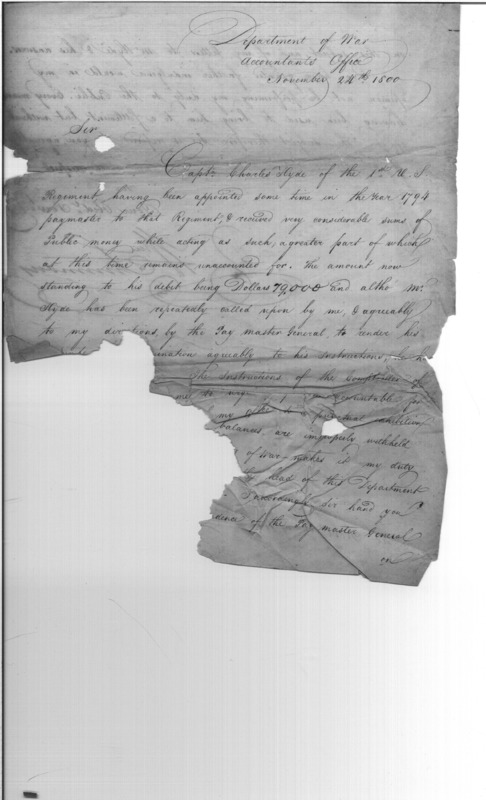 Department of War
Accountants Office
November 24th 1800
Sir
Captn Charles Hyde of the 1st U. S.
Regiment, having been appointed some time in the Year 1794
paymaster to that Regiment, & received very considerable sums of
Public money while acting as such, a greater part of which
at this time remains unaccounted for. the amount now
standing to his debit being Dollars 79,000 and altho Mr
Hyde has been repeatedly called upon by me, & agreeably
to my directions, by the Pay master General, to render his
agreeably to his Instructions
the Instructions of the Comptroller of
me to urge accountable for
my office to a punctual exhibition
balances are improperly withheld
of War makes it my duty
head of this Department
I accordingly Sir hand you
of the Pay master General
on